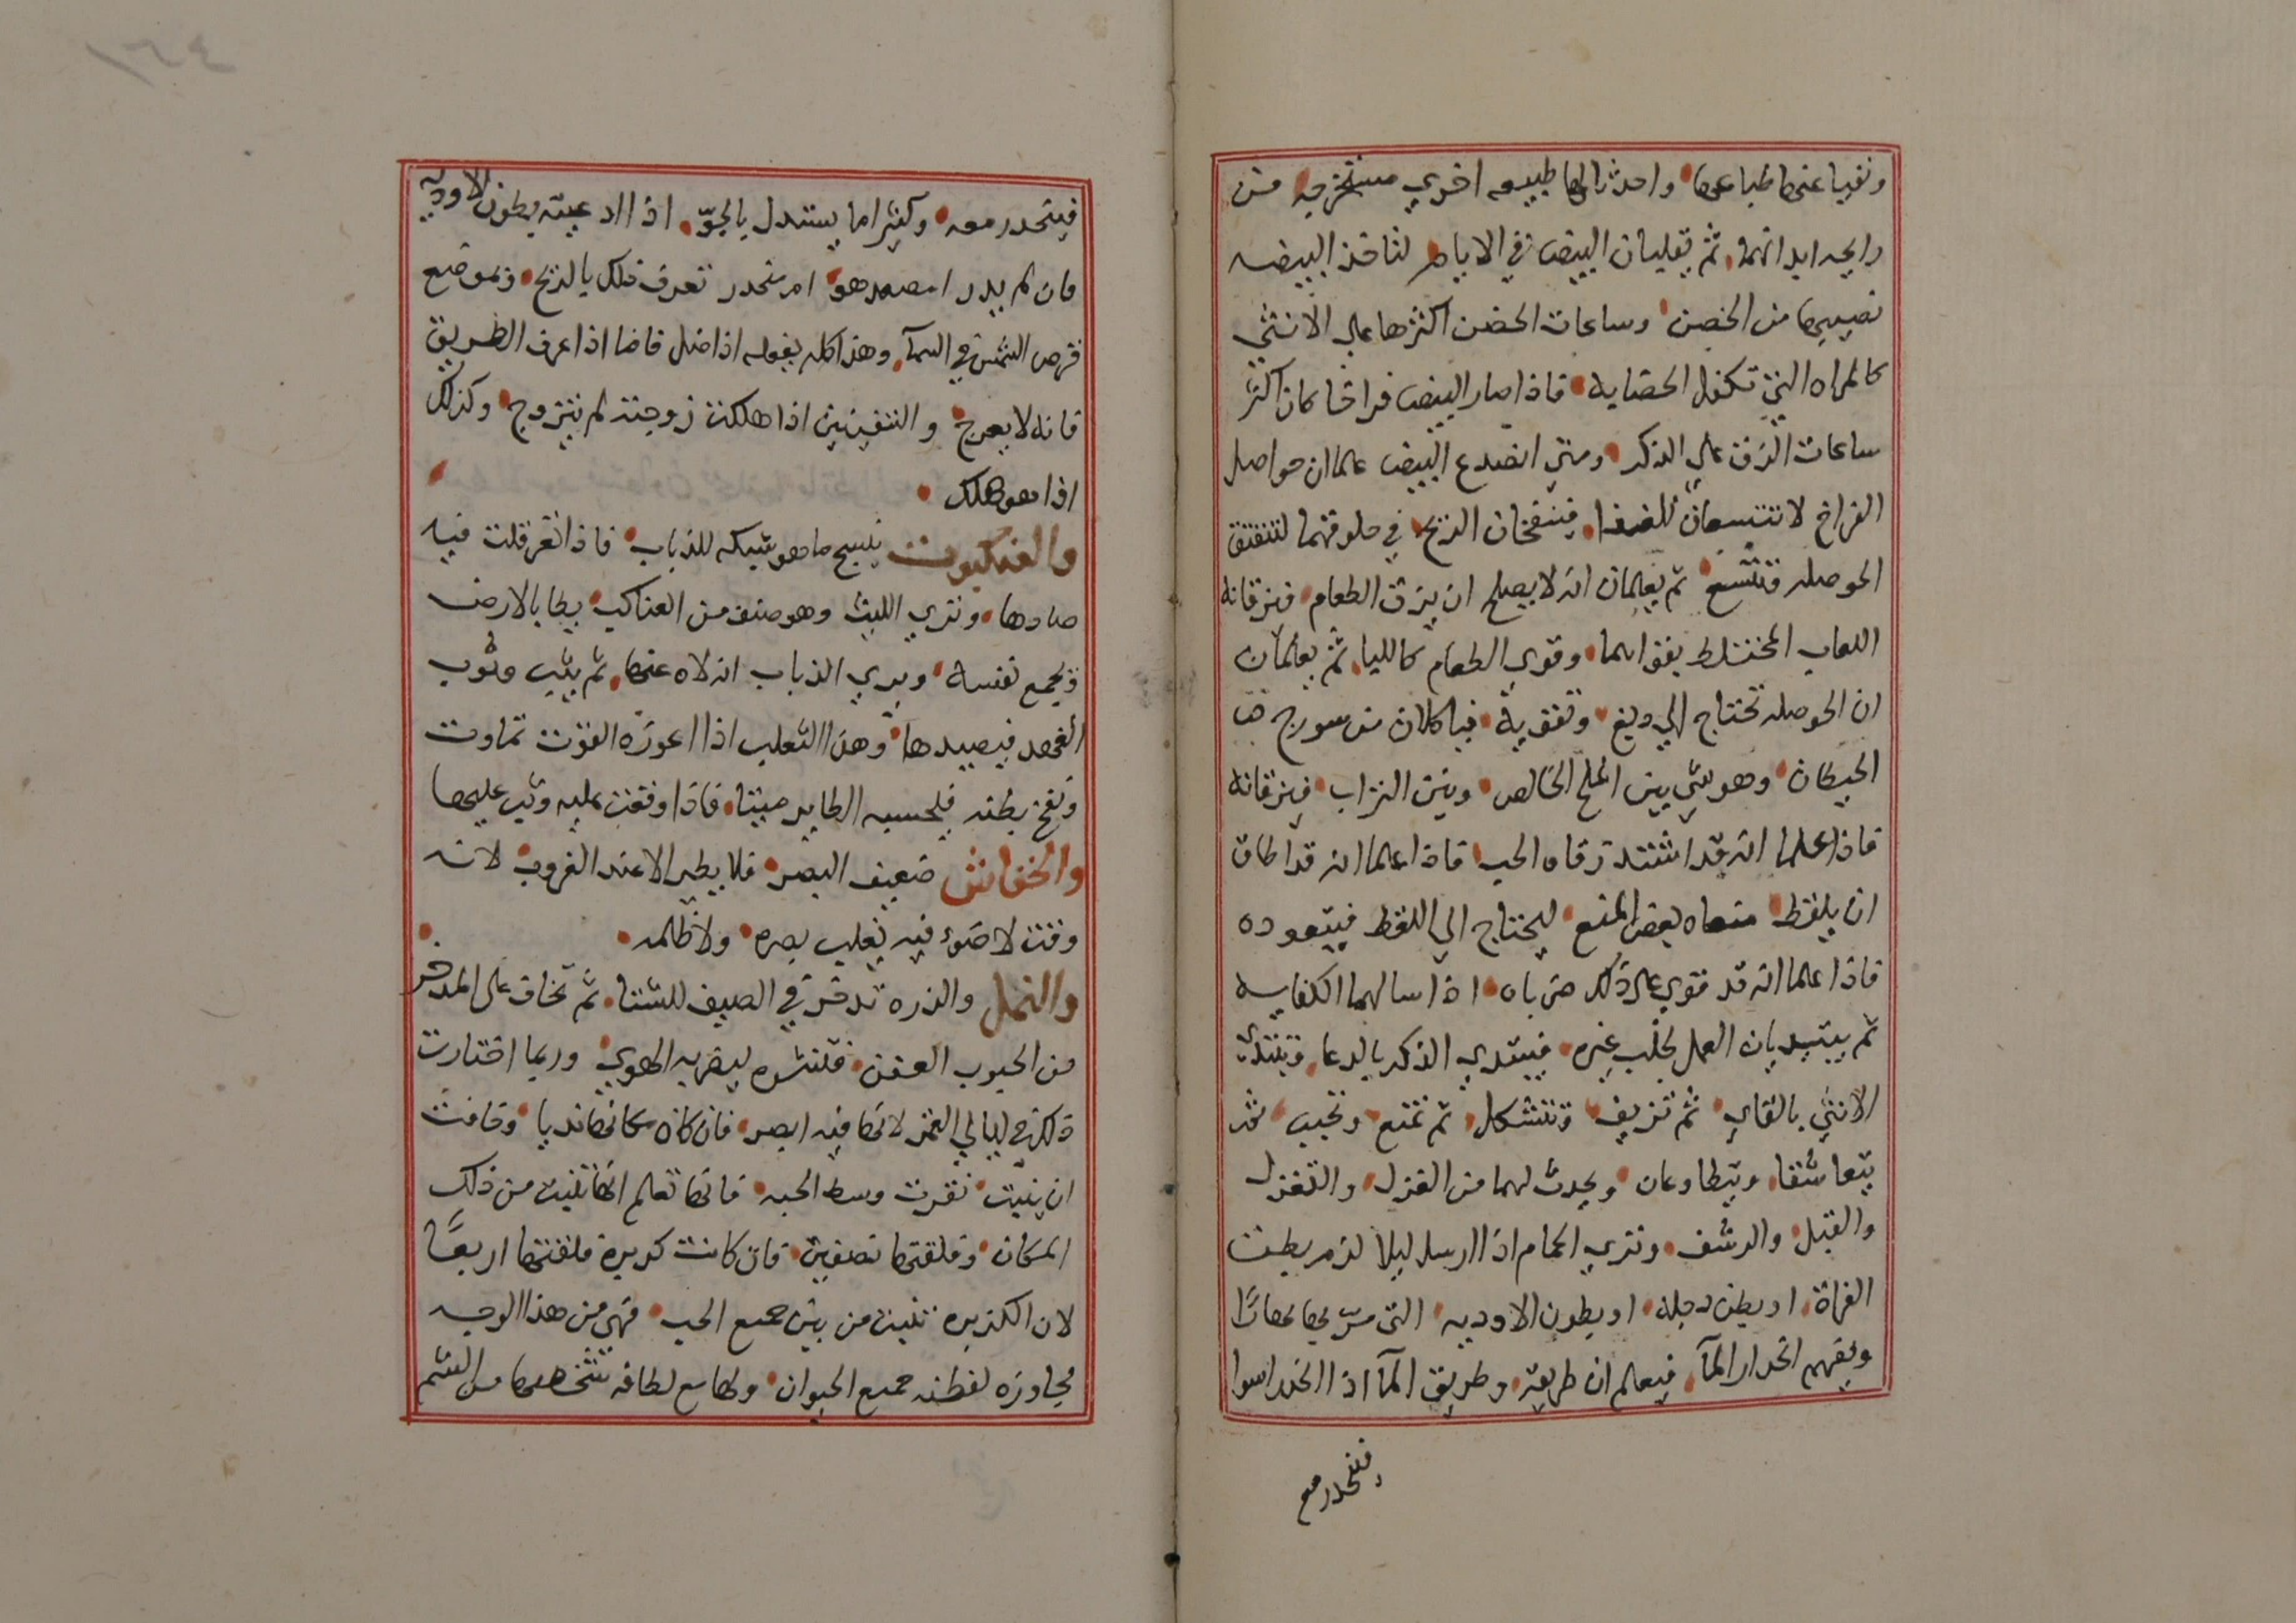 ونفيا عنها طباعها واحدثا لها طبيعه اخري مستخرجه من
رايحه ابدانهما ثم يقلبان البيض في الايام لتاخذ البيضه
نصيبها من الحضن وساعات الحضن اكثرها علي الانثي
كالمراه التي تكفل الحضايه فاذا صار البيض فراخا كان اكثر
ساعات الزق علي الذكر ومتي انصدع البيض علما ان حواصل
الفراخ لا تتسعان للغذا فينفخان الريح في حلوقهما لتنفتق
الحوصله فتتسع ثم يعلمان انه لا يصلح ان يزق الطعام فيزقانه
اللعاب المختلط بقواهما وقوي الطعام كاللبا ثم يعلمان
ان الحوصله تحتاج الي دبغ وتقويه فياكلان من سورج
الحيطان وهو شي بين الملح الخالص وبين التراب فيزقانه
فاذا علما انه قد اشتد زقاه الحب فاذا علما انه قد اطاق
ان يلقط منعاه بعض المنع ليحتاج الي اللقط فيتعوده
فاذا علما انه قد قوي علي ذلك ضرباه اذا سالهما الكفايه
ثم يبتديان العمل لجلب غيره فيبتدي الذكر بالدعا وتبتدي
الانثي بالتاني ثم تزيف وتتشكل ثم تمتنع وتجيب ثم
يتعاشقا ويتطاوعان ويحدث لهما من الغزل والتغزل
والقبل والرشف وتري الحمام اذا ارسل ليلا لزم بطن
الفراة او بطن دجله او بطون الاوديه التي مر بها نهارًا
ويفهم انحدار المآ فيعلم ان طريقه وطريق المآ اذا انحدر سوا
فينحدر مع
فينحدر معه وكثيرا ما يستدل بالجوّ اذا اعيته بطون الاوديه
فان لم يدر امصعد هو ام منحدر تعرف ذلك بالريح وبموضع
قرص الشمس في السمآ وهذا كله يفعله اذا ضل فاما اذا عرف الطريق
فانه لا يعرج والشفنين اذا هلكت زوجته لم يتزوج وكذلك
اذا هو هلك
والعنكبوت ينسج ما هو شبكه للذباب فاذا تعرقلت فيه
صادها وتري الليث وهو صنف من العناكب يطا بالارض
ويجمع نفسه ويري الذباب انه لاه عنها ثم يثب وثوب
الفهد فيصيدها وهذا الثعلب اذا اعوزه القوت تماوت
ونفخ بطنه فيحسبه الطاير ميتا فاذا وقعت عليه وثب عليها
والخفاش ضعيف البصر فلا يطير الا عند الغروب لانه
وقت لا ضوء فيه يغلب بصره ولا ظلمه
والنمل والذره تدخر في الصيف للشتا ثم تخاف علي المدخر
من الحبوب العفن فتنشره ليضربه الهوي وربما اختارت
ذلك في ليالي القمر لانها فيه ابصر فان كان مكانها نديا وخافت
ان ينبت نقرت وسط الحبه فانها تعلم انها تنبت من ذلك
المكان وفلقتها نصفين فان كانت كزبرة فلقتها اربعًا
لان الكزبره تنبت من بين جميع الحب فهي من هذا الوجه
مجاوزه لفطنه جميع الحيوان ولها مع لطافه شخصها من الشم